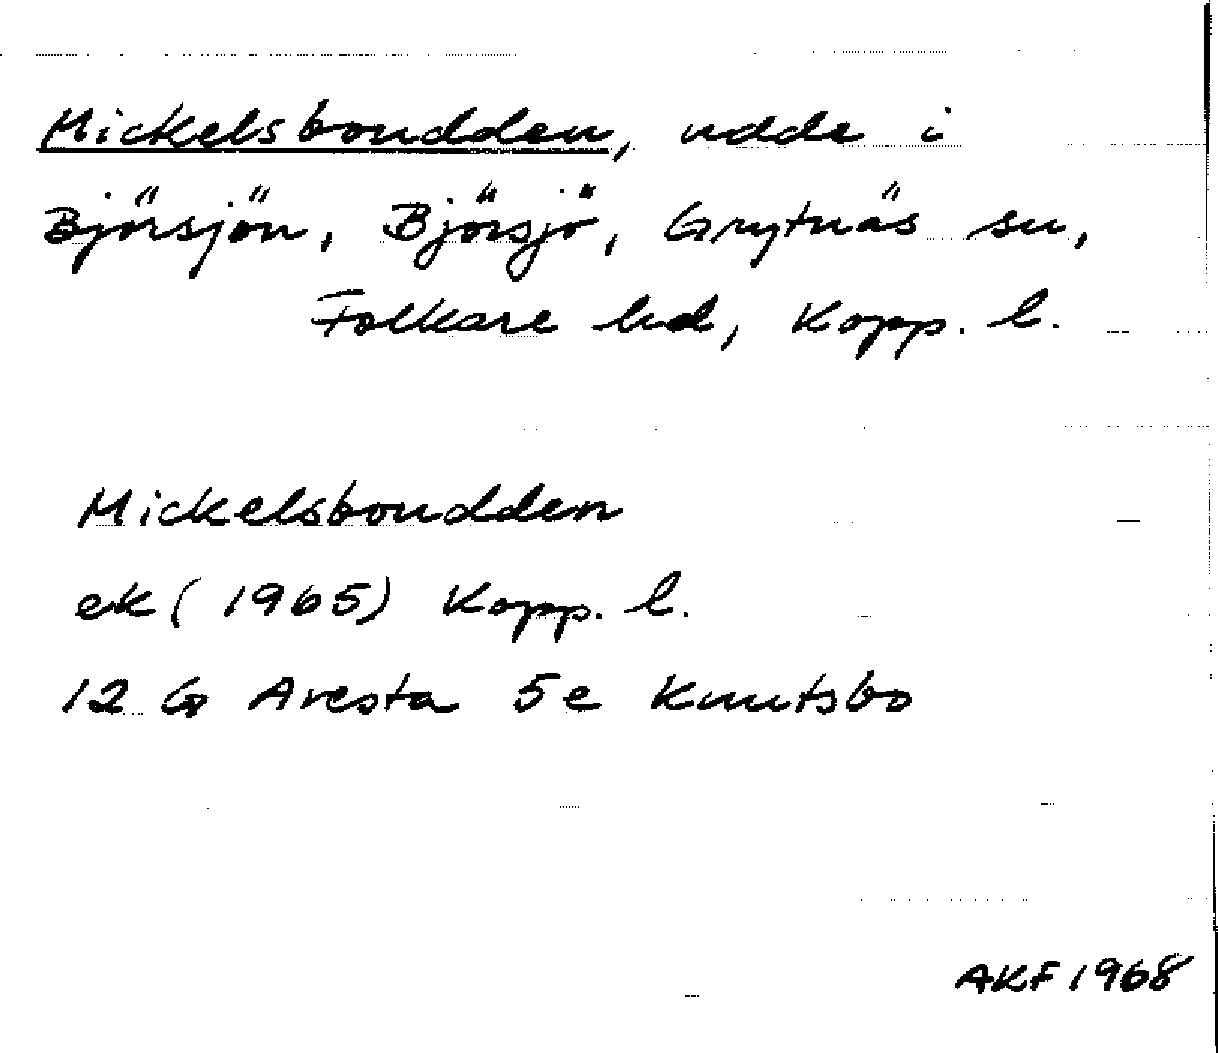 Mickelsboudden, udde i
Björsjön, Björsjö, Grytnäs sn,
Folkare hd, Kopp. l.
Mickelsboudden
ek (1965) Kopp. l.
12 G Avesta 5e Knutsbo
AKF 1968